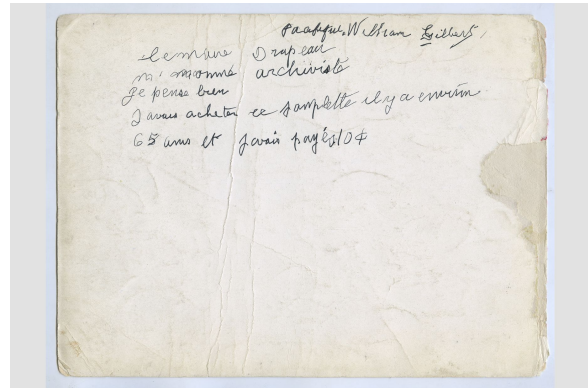 William Gilbert,
le maire Drapeau
m'nommé archiviste
je pense bien
J avais acheter ce pamplette il y a environ
65 ans et j'avais payés 10¢